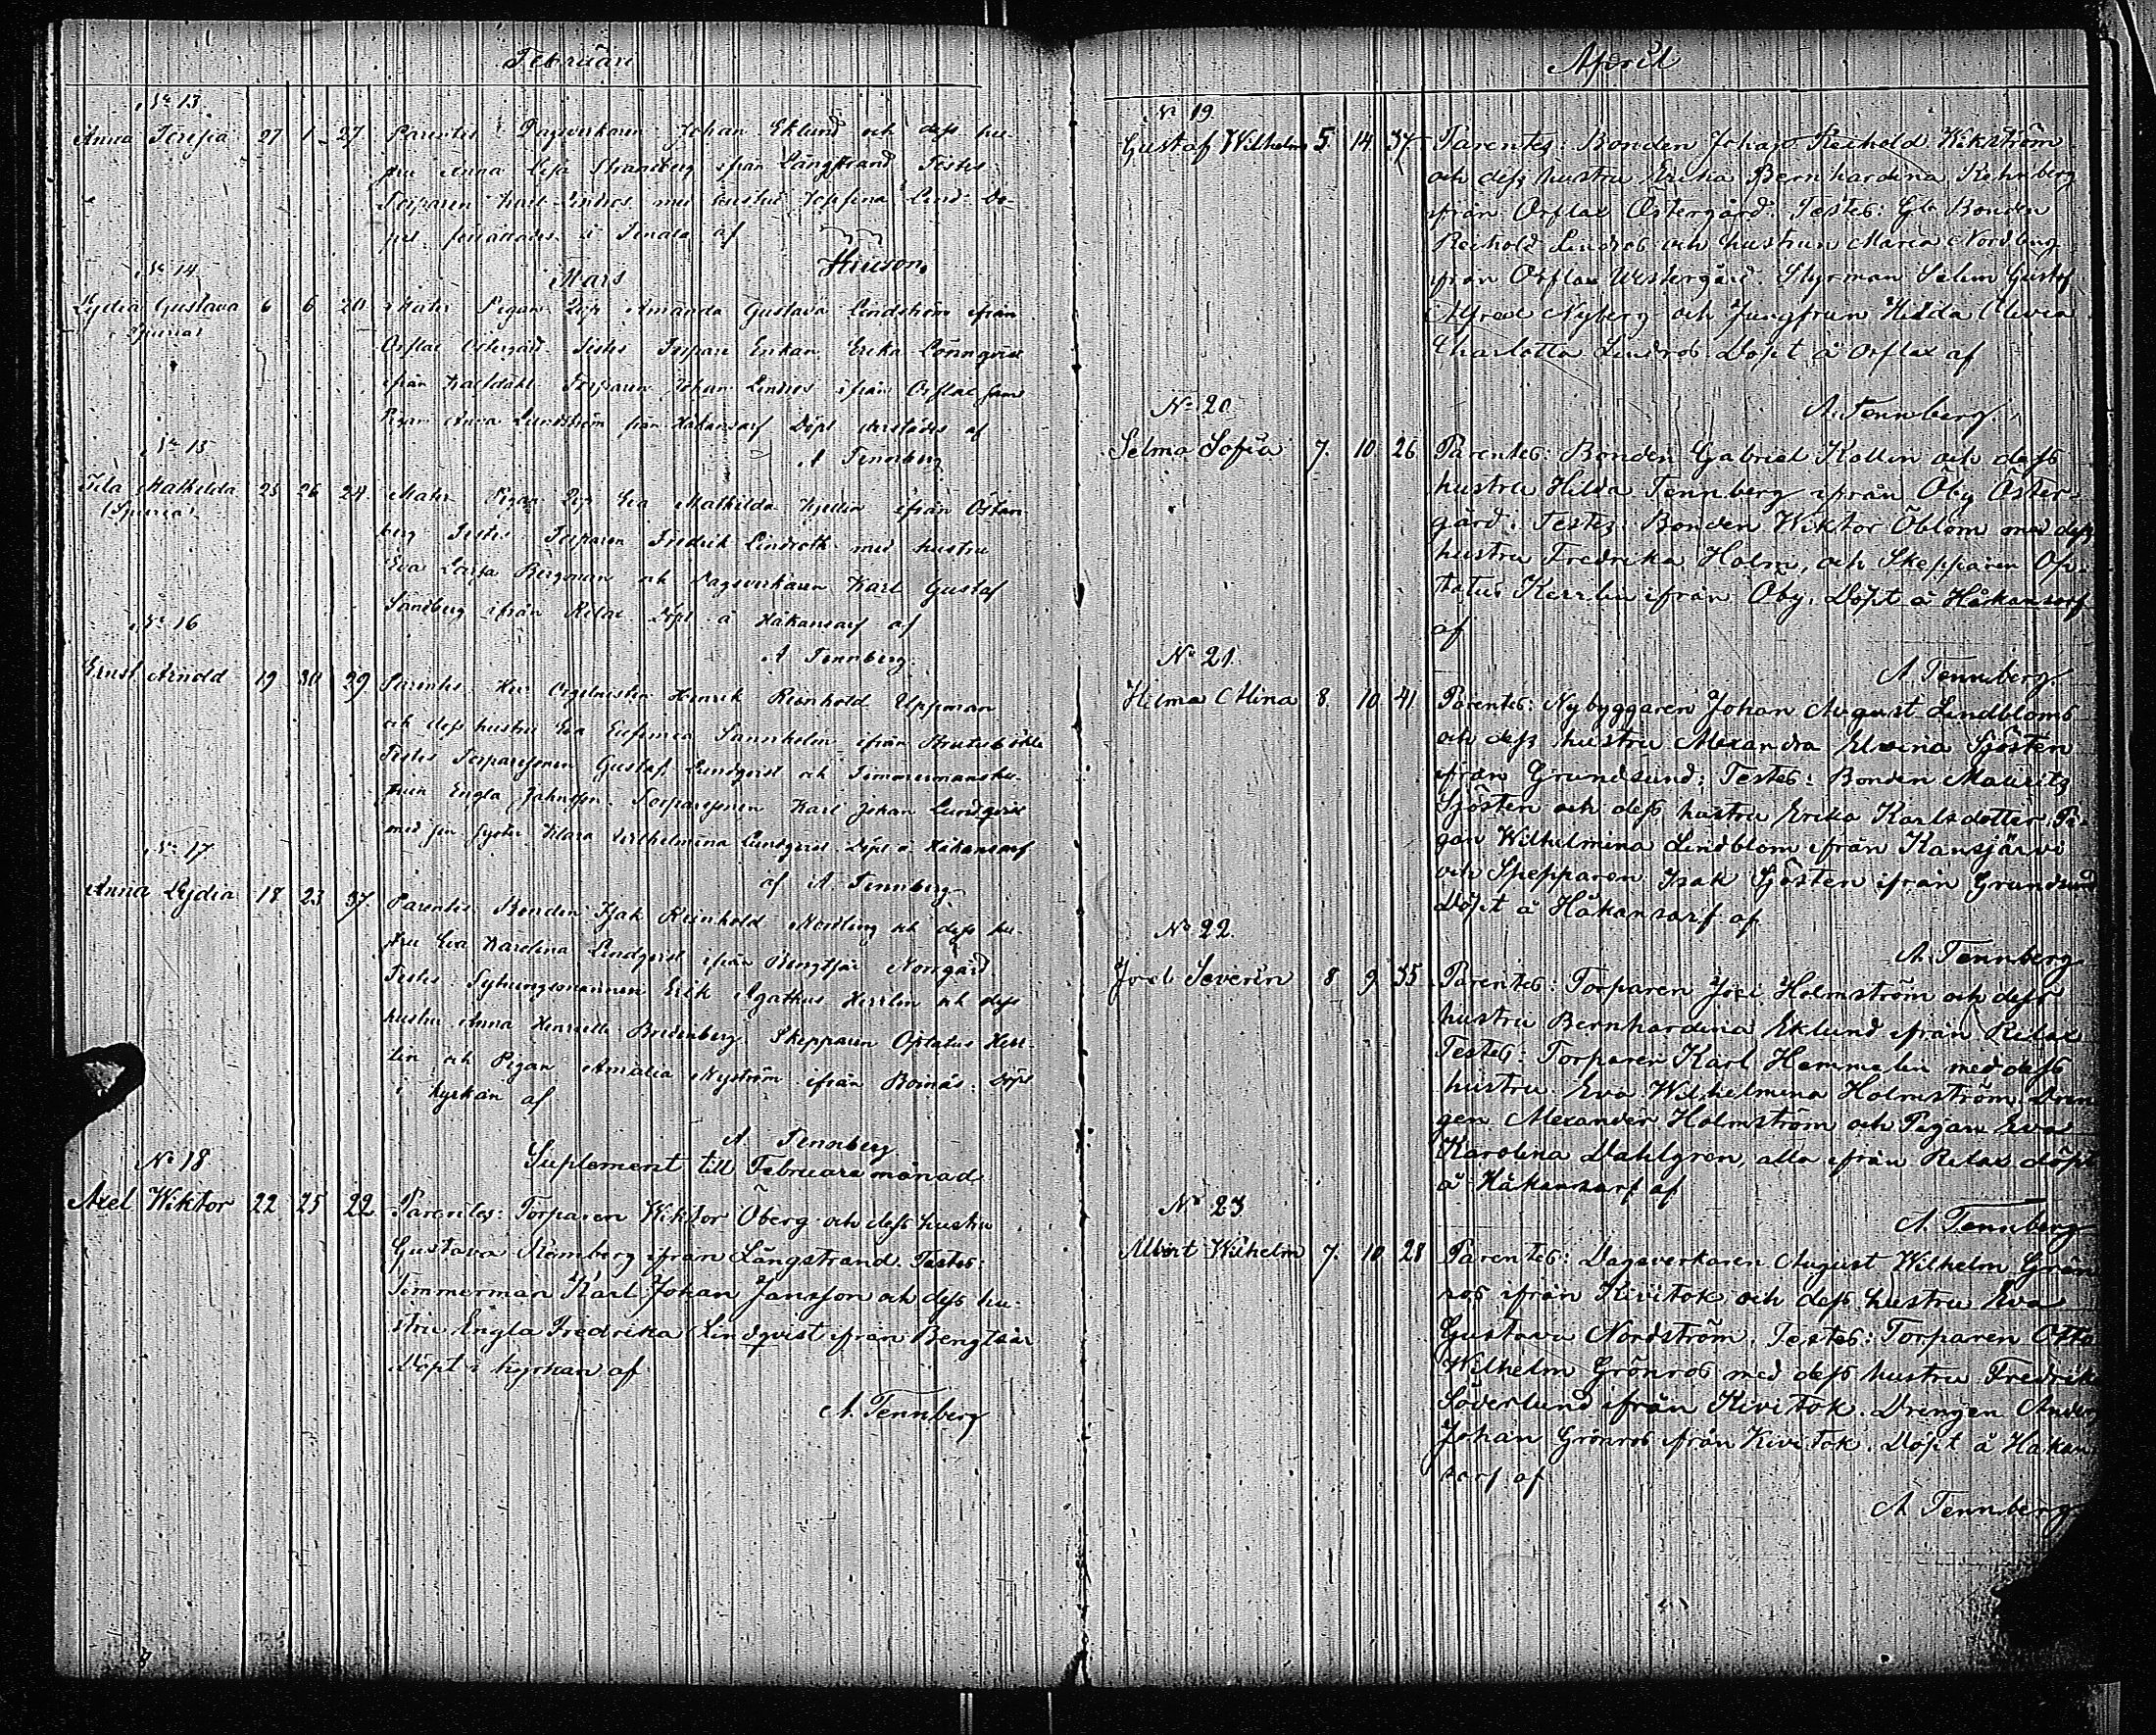 Februari
No 13
Anna Teresia 27 1 27 Parentes Dagsverkaren Johan Eklund och dess hu-
stru Anna Lisa Strandberg ifrån Långstrand Testes
Torparen Karl Lindros med hustru Josefina Lind. Dö-
pet förrättades i Tenala af
Hinson.
Mars
No 14
Lydia Gustava 6 6 20 Mater Pigan Amanda Gustava Lindström ifrån
(Spuria)
Orslax Östergård. Testes Torpare Enkan Erika Lönnqvist
ifrån Torparen Johan Lindros ifrån Orslax samt
Pigan Anna Lundström från Håkansarf Döpt derstädes af
A Tennberg
No 15
Ida Mathilda 25 26 24 Mater Pigan Eva Mathilda ifrån Öster-
(Spuria)
berg Testes Torparen Fredrik Lindroth med hustru
Eva Lovisa Bergman och Dagsverkaren Karl Gustaf
Sandberg ifrån Relax Döpt å Håkansarf af
A Tennberg.
No 16
Ernst Arnold 19 30 29 Parentes Herr Orgelnisten Henrik Reinhold Uppman
och dess hustru Eva Eufemia Sannholm ifrån
Testes Torparesonen Gustaf Lundqvist och Timmermanshu-
strun Engla Jahnsson. Torparesonen Karl Johan Lundqvist
med sin syster Klara Wilhelmina Lundqvist. Döpt å Håkansarf
af A. Tennberg
No 17
Anna Lydia 18 23 37 Parentes Bonden Isak Reinhold Nordling och dess hu-
stru Eva Karolina Lindqvist ifrån Bengtsår Norrgård
Testes Sytningsmannen Erik Agathus Herrlin och dess
hustru Anna Henriette Bredenberg. Skepparen Optatus Herr-
lin och Pigan Amalia Nyström ifrån Boinäs. Döpt
i kyrkan af
A Tennberg
Suplement till Februari månad
No 18
Axel Wiktor 22 25 22 Parentes: Torparen Wiktor Öberg och dess hustru
Gustava Romberg ifrån Långstrand. Testes:
Timmerman Karl Johan Jansson och dess hu-
stru Engla Fredrika Lindqvist ifrån Bengtsår
Döpt i kyrkan af
A. Tennberg
April
No 19
Gustaf Wilhelm 5. 14 37 Parentes: Bonden Johan Reihold Wikström
och dess hustru Erika Bernhardina Rehnberg
ifrån Orslax Östergård. Testes: Gla Bonden
Reihold Lindros och hustrun Maria Nordberg
ifrån Orslax Westergård. Styrman Selim Gustaf
Alfred Nyberg och Jungfrun Hilda Olivia
Charlotta Lindros Döpt å Orslax af
A. Tennberg.
No 20
Selma Sofia 7. 10 26 Parentes: Bonden Gabriel Kollin och dess
hustru Hilda Tennberg ifrån Öby Öster-
gård: Testes: Bonden Wiktor Öblom med dess
hustru Fredrika Holm, och Skepparen Op-
tatus Kerrlin ifrån Öby. Döpt å Håkansarf
af
A Tennberg.
No 21.
Hilma Mina 8. 10 41 Parentes: Nybyggaren Johan August Lindblom
och dess hustru Alexandra Elvina Sjösten
ifrån Grundsund: Testes: Bonden Mauritz
Sjösten och dess hustru Erika Karlsdotter. Pi-
gan Wilhelmina Lindblom ifrån Kansjärvi
och Skepparen Isak Sjösten ifrån Grundsund
Döpt å Håkansarf af
A. Tennberg
No 22.
Joel Severin 8 9 35 Parentes: Torparen Joel Holmström och dess
hustru Bernhardina Eklund ifrån Relax
Testes: Torparen Karl Hemmelin med dess
hustru Eva Wilhelmina Holmström. Dren-
gen Alexander Holmström och Pigan Eva
Karolina Dahlgren, alla ifrån Relax döpt
å Håkansarf af
A. Tennberg
No 23
Albert Wilhelm 7. 10 28 Parentes: Dagsverkaren August Wilhelm Grön-
ros ifrån Kivitok och dess hustru Eva
Gustava Nordström. Testes: Torparen Otto
Wilhelm Grönros med dess hustru Fredrika
Söderlund ifrån Kivitok. Drengen Anders
Johan Grönros ifrån Kivitok. Döpt å Håkan
sarf af
A Tennberg